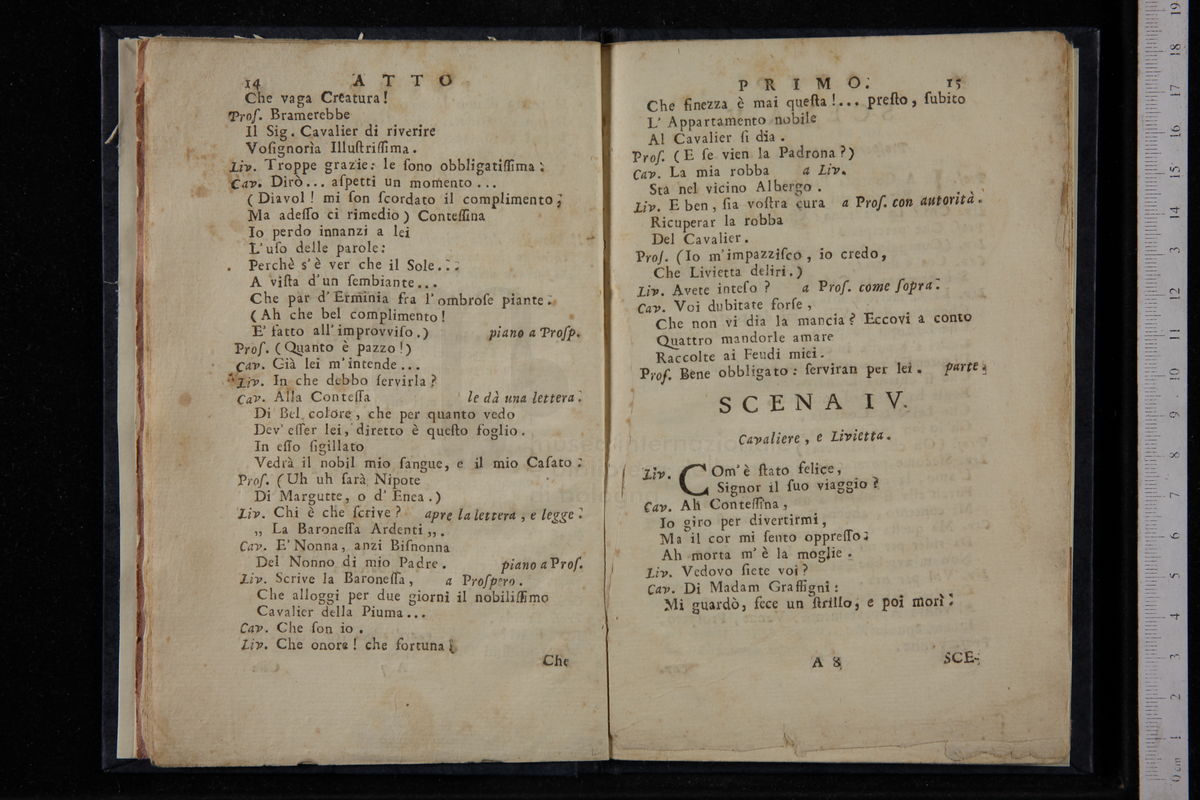 14 ATTO
Che vaga Creatura!
Prof. Bramerebbe
Il Sig. Cavalier di riverire
Voſignorìa Illuſtriſſima.
Liv. Troppe grazie: le ſono obbligatiſſima:
Cav. Dirò... aſpetti un momento...
(Diavol! mi ſon ſcordato il complimento;
Ma adeſſo ci rimedio) Conteſſina
Io perdo innanzi a lei
L'uſo delle parole:
Perchè s'è ver che il Sole...
A viſta d'un ſembiante...
Che par d'Erminia fra l'ombroſe piante.
(Ah che bel complimento!
E' fatto all'improvviſo.) piano a Proſp.
Proſ. (Quanto è pazzo!)
Cav. Già lei m'intende...
Liv. In che debbo ſervirla?
Cav. Alla Conteſſa le dà una lettera.
Di Bel colore, che per quanto vedo
Dev' eſſer lei, diretto è queſto foglio.
In eſſo ſigillato
Vedrà il nobil mio ſangue, e il mio Caſato:
Proſ. (Uh uh ſarà Nipote
Di Margutte, o d' Enea.)
Liv. Chi è che ſcrive? apre la lettera, e legge.
„ La Baroneſſa Ardenti „.
Cav. E' Nonna, anzi Biſnonna
Del Nonno di mio Padre. piano a Proſ.
Liv. Scrive la Baroneſſa, a Proſpero.
Che alloggi per due giorni il nobiliſſimo
Cavalier della Piuma...
Cav. Che ſon io.
Liv. Che onore! che fortuna!
Che
PRIMO. 15
Che finezza è mai queſta!... preſto, ſubito
L' Appartamento nobile
Al Cavalier ſi dia.
Proſ. (E ſe vien la Padrona?)
Cav. La mia robba a Liv.
Sta nel vicino Albergo.
Liv. E ben, ſia voſtra cura a Proſ. con autorità.
Ricuperar la robba
Del Cavalier.
Proſ. (Io m'impazziſco, io credo,
Che Livietta deliri.)
Liv. Avete inteſo? a Proſ. come ſopra.
Cav. Voi dubitate forſe,
Che non vi dia la mancia? Eccovi a conto
Quattro mandorle amare
Raccolte ai Feudi miei.
Proſ. Bene obbligato: ſerviran per lei. parte.
SCENA IV.
Cavaliere, e Livietta.
Liv. COm'è ſtato felice,
Signor il ſuo viaggio?
Cav. Ah Conteſſina,
Io giro per divertirmi,
Ma il cor mi ſento oppreſſo;
Ah morta m'è la moglie.
Liv. Vedovo ſiete voi?
Cav. Di Madam Graffignì:
Mi guardò, fece un ſtrillo, e poi morì.
A 8 SCE-